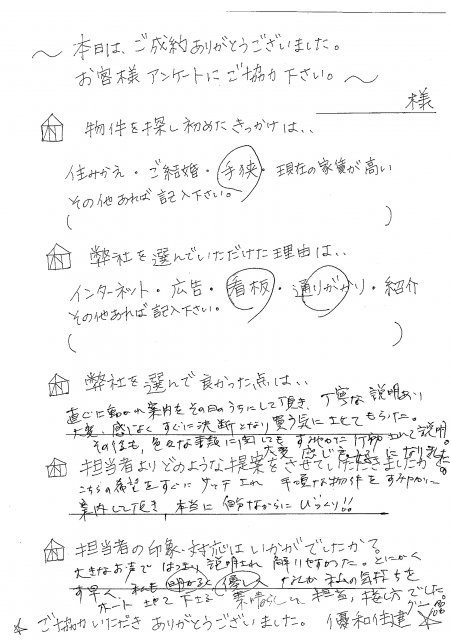 〜 本日は、ご成約ありがとうございました。
お客様アンケートにご協力下さい。〜
様
物件を探し初めたきっかけは、、
住みかえ・ご結婚・手狭・現在の家賃が高い
その他あれば記入下さい。
(　　　)
弊社を選んでいただけた理由は、、
インターネット・広告・看板・通りがかり・紹介
その他あれば記入下さい。
(　　　)
弊社を選んで良かった点は、、
直ぐに動かれ案内をその日のうちにして頂き、丁寧な説明あり
大変、感じよくすぐに決断となり買う気にさせてもらった。
その後も、色々な事務に関しても すみやかに行動 されて説明。
大変 感じ
担当者よりどのような提案をさせていただきましたか
こちらの希望をすぐに サッチ され 手頃な物件を すみやかに
案内して頂き、本当に 負ながらに びっくり!!
担当者の印象・対応はいかがでしたか?。
大きなお声で はっきり 説明され 解りやすかった。とにかく
す早く、私も 明かるく 優しい 私の気持ちを
ホート させて 下さる 素晴らしい 担当、接し方でした。
ご協力いただき ありがとうございました。 優和住建